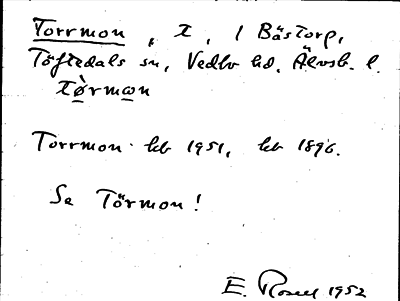 Torrmon, t, i Båstorp,
Töftedals sn, Vedbo hd. Älvsb. l.
tø̀rmo̲n
Torrmon kb 1951, kb 1896.
Se Törmon!
E. Rosell 1952